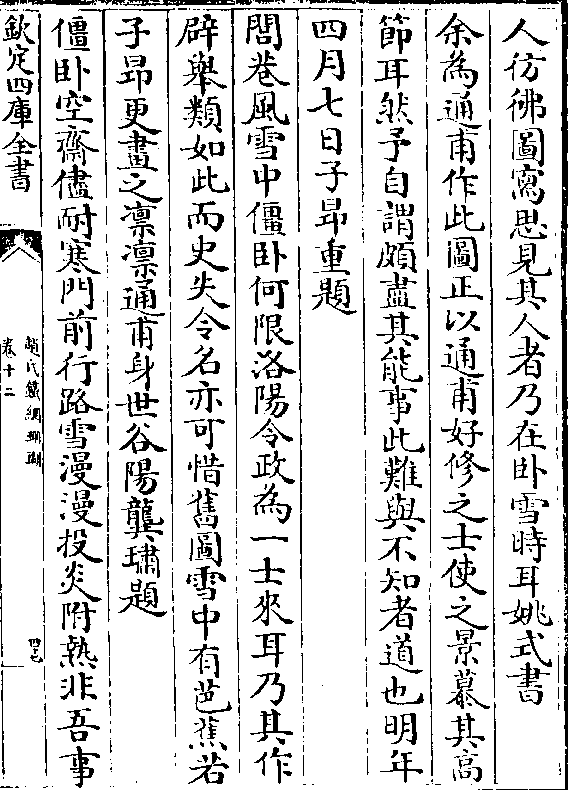 人彷彿圖寫思見其人者乃在臥雪時耳姚式書
余為通甫作此圖正以通甫好修之士使之景慕其高
節耳然予自謂頗盡其能事此難與不知者道也明年
四月七日子昻重題
閭巷風雪中僵臥何限洛陽令政為一士來耳乃其作
辟舉類如此而史失令名亦可惜舊圖雪中有芭蕉若
子昻更畫之凛凛通甫身世谷陽龔璛題
僵卧空齋儘耐寒門前行路雪漫漫投炎附熱非吾事
欽定四庫全書
趙氏鐵網珊瑚
卷十二